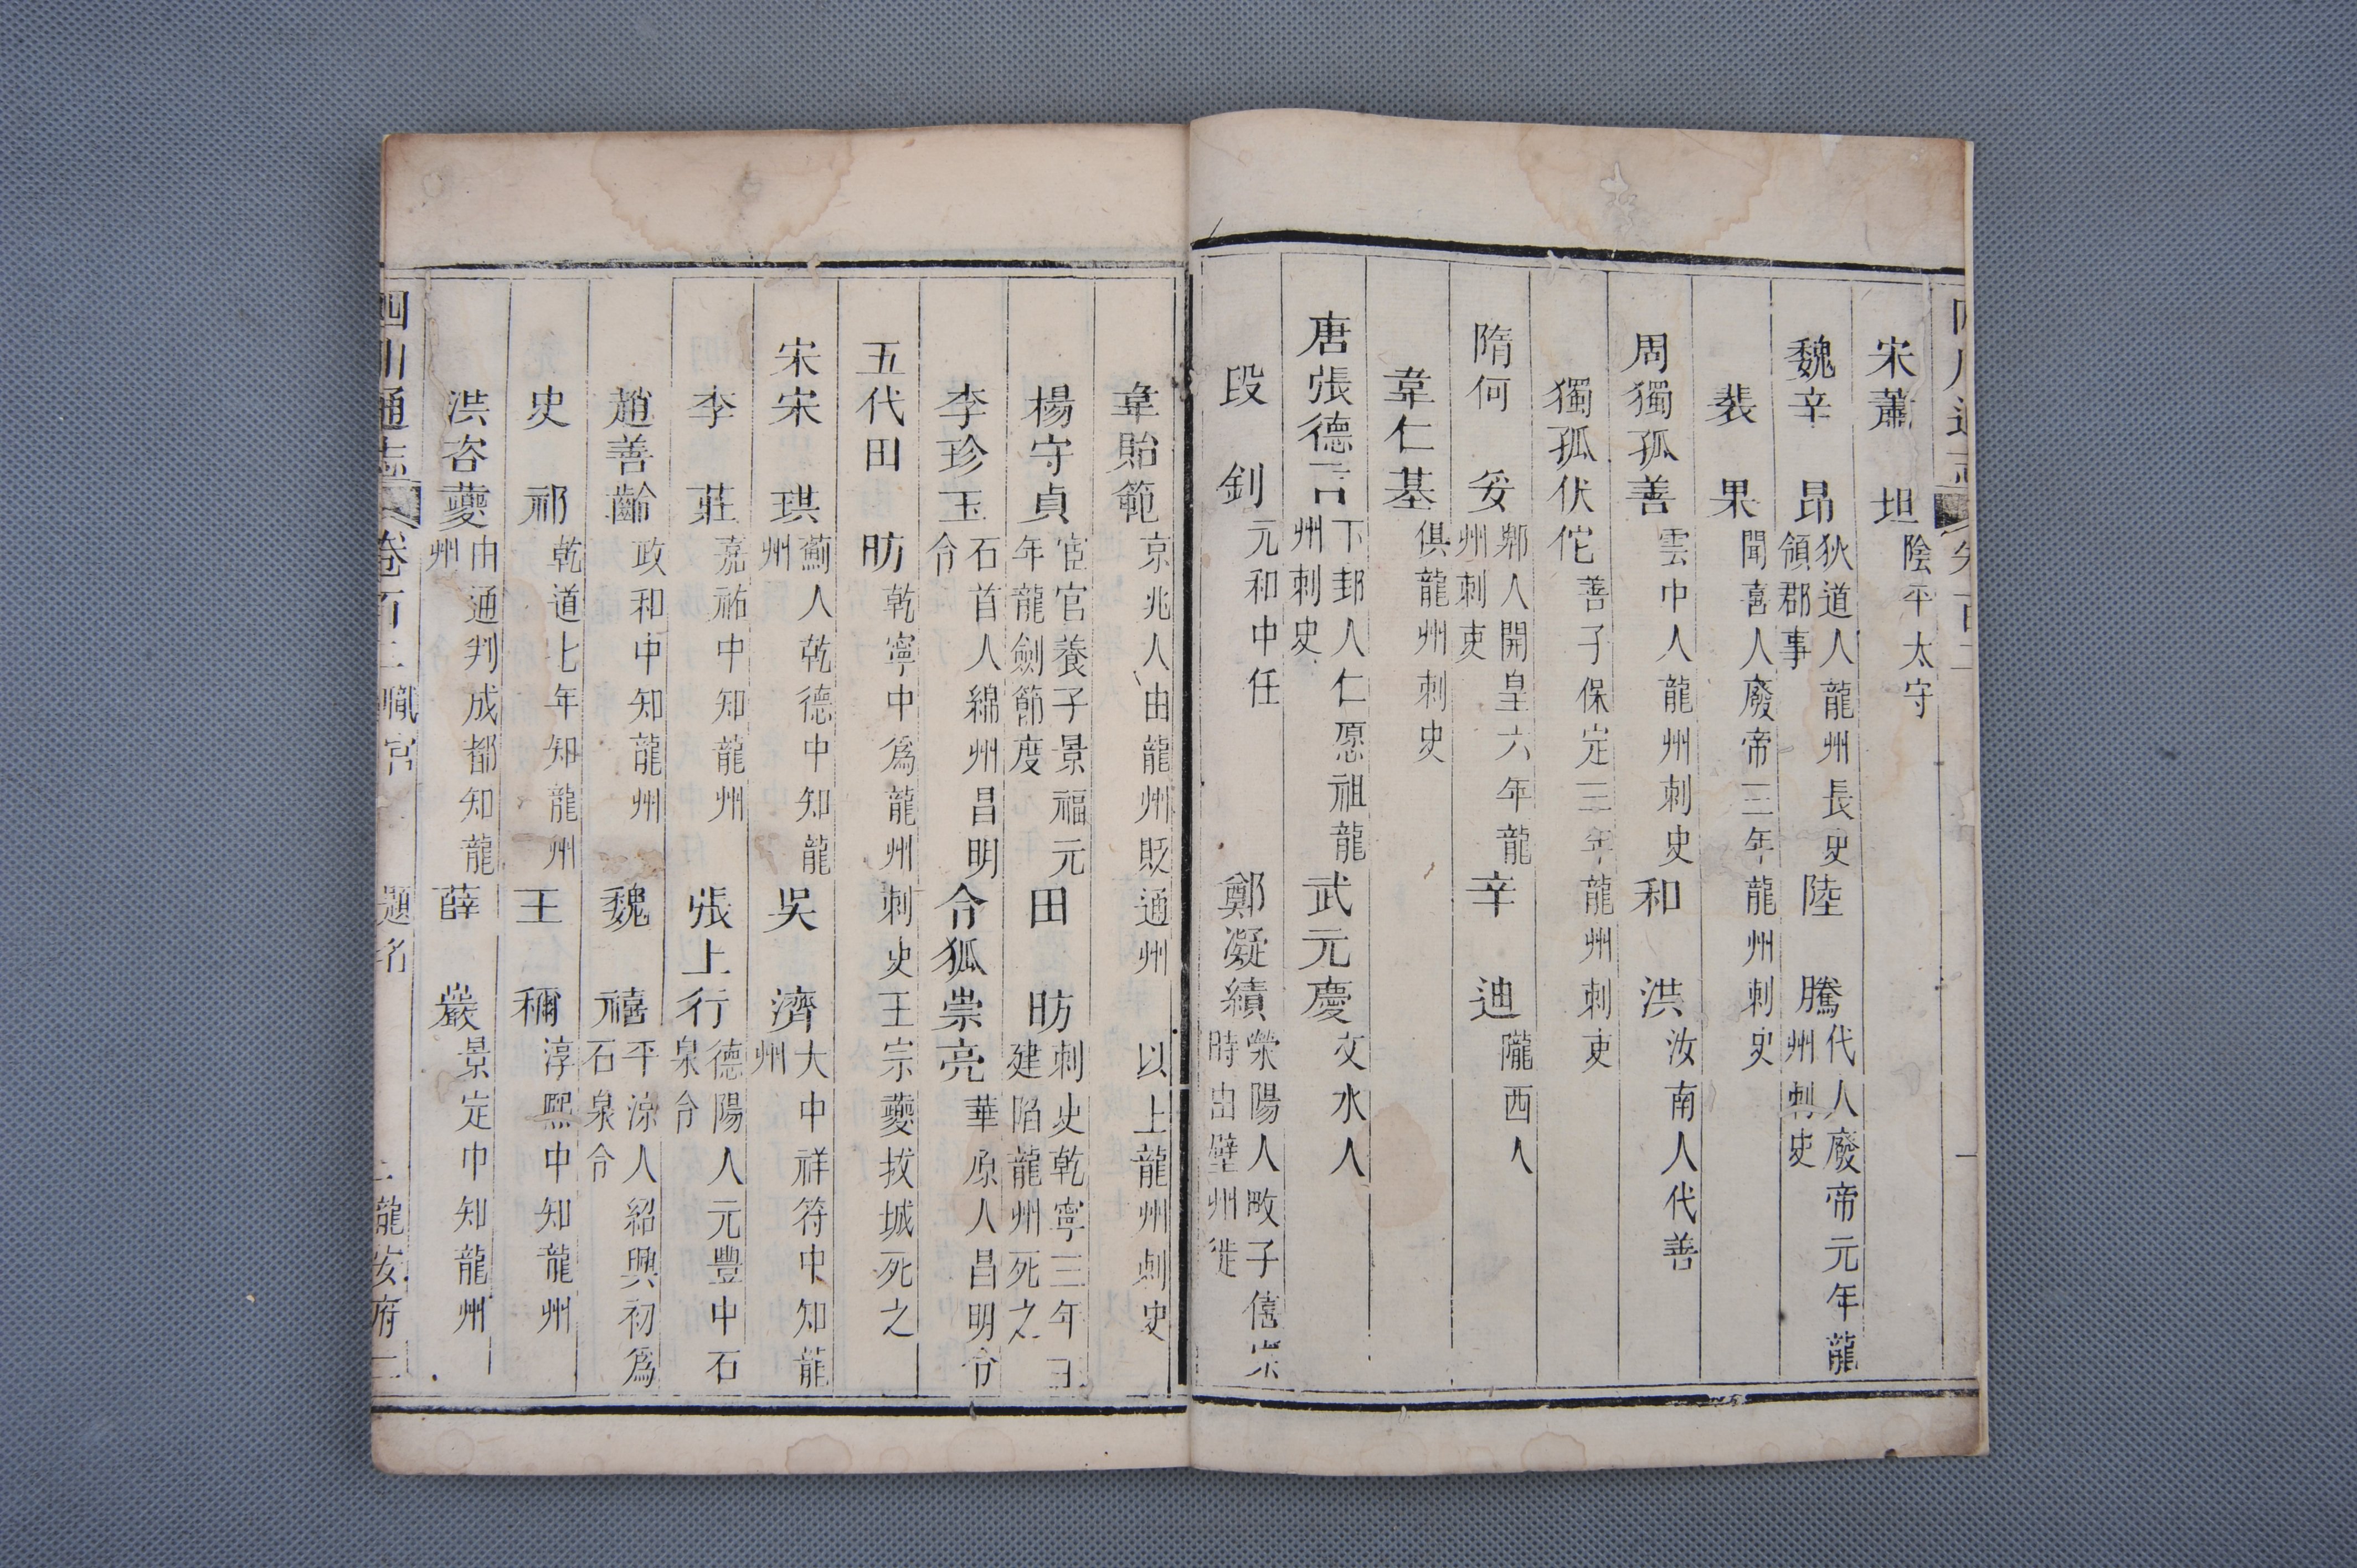 宋蕭坦陰平太守
魏辛昂狄道人龍州長史領郡事陸騰代人廢帝元年龍州刺史
裴果聞喜人廢帝三年龍州刺史
周獨孤善雲中人龍州刺史和洪汝南人代善
獨孤伏佗善子保定三年龍州刺吏
隋何妥郫人開皇六年龍州刺吏辛迪隴西人
韋仁基俱龍州刺史
唐張德言下邽人仁愿祖龍州刺史武元慶文水人
段釗元和中任鄭凝績滎陽人畋子僖宗時出壁州徙
韋貽範京兆人由龍州貶通州以上龍州刺史
楊守貞宦官養子景福元年龍劍節度田昉刺史乾寧三年王建陷龍州死之
李珍玉石首人綿州昌明令令狐崇亮華原人昌明令
五代田昉乾寧中爲龍州刺史王宗夔拔城死之
宋宋琪薊人乾德中知龍州吳濟大中祥符中知龍州
李莊嘉祐中知龍州張上行德陽人元豐中石泉令
趙善齡政和中知龍州魏禧平涼人紹興初爲石泉令
史祁乾道七年知龍州王穪淳熙中知龍州
洪咨夔由通判成都知龍州薛嚴景定中知龍州
四川通志卷百二職官題名龍安府